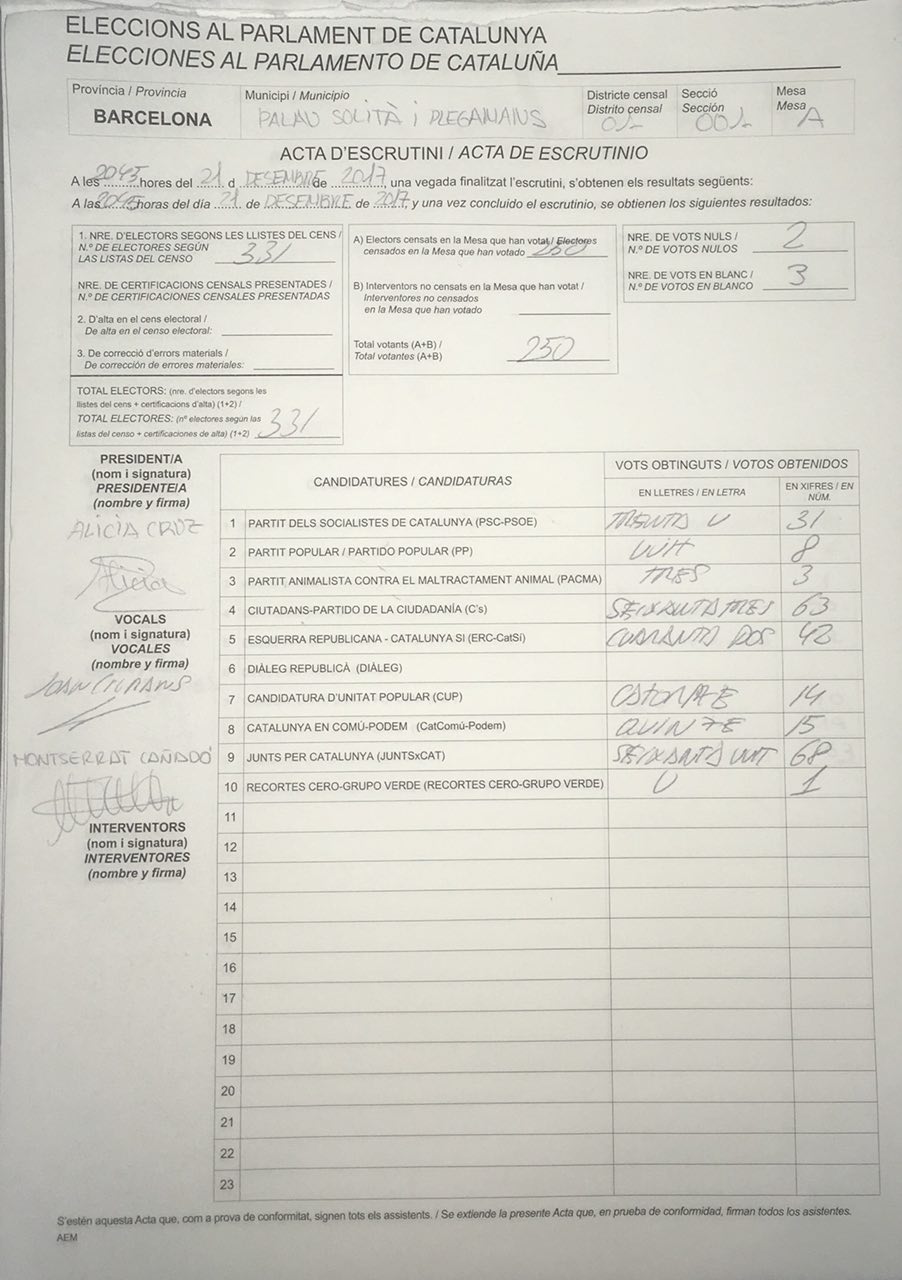 ELECCIONS AL PARLAMENT DE CATALUNYA
ELECCIONES AL PARLAMENTO DE CATALUÑA
Província / Provincia
BARCELONA
Municipi / Municipio
PALAU SOLITÀ i PLEGAMANS
Districte censal
Distrito censal
01-
Secció
Sección
001-
Mesa
Mesa
A
ACTA D'ESCRUTINI / ACTA DE ESCRUTINIO
A les 2045 hores del 21 d DESEMBRE de 2017, una vegada finalitzat l'escrutini, s'obtenen els resultats següents:
A las 2045 horas del día 21 de DESEMBRE de 2017, y una vez concluido el escrutinio, se obtienen los siguientes resultados:
1. NRE. D'ELECTORS SEGONS LES LLISTES DEL CENS /
N.º DE ELECTORES SEGÚN
LAS LISTAS DEL CENSO 331
NRE. DE CERTIFICACIONS CENSALS PRESENTADES /
N.º DE CERTIFICACIONES CENSALES PRESENTADAS
2. D'alta en el cens electoral /
De alta en el censo electoral:
3. De correcció d'errors materials /
De corrección de errores materiales:
TOTAL ELECTORS: (nre. d'electors segons les
llistes del cens + certificacions d'alta) (1+2) /
TOTAL ELECTORES: (nº electores según las
listas del censo + certificaciones de alta) (1+2) 331
A) Electors censats en la Mesa que han votat / Electores
censados en la Mesa que han votado 250
B) Interventors no censats en la Mesa que han votat /
Interventores no censados
en la Mesa que han votado
Total votants (A+B) /
Total votantes (A+B) 250
NRE. DE VOTS NULS /
N.º DE VOTOS NULOS 2
NRE. DE VOTS EN BLANC /
N.º DE VOTOS EN BLANCO 3
PRESIDENT/A
(nom i signatura)
PRESIDENTE/A
(nombre y firma)
ALICIA CRUZ
Alicia
VOCALS
(nom i signatura)
VOCALES
(nombre y firma)
JOAN
MONTSERRAT CAÑADÓ
INTERVENTORS
(nom i signatura)
INTERVENTORES
(nombre y firma)
CANDIDATURES / CANDIDATURAS
VOTS OBTINGUTS / VOTOS OBTENIDOS
EN LLETRES / EN LETRA
EN XIFRES / EN
NÚM.
1 PARTIT DELS SOCIALISTES DE CATALUNYA (PSC-PSOE) TRENTA U 31
2 PARTIT POPULAR / PARTIDO POPULAR (PP) VUIT 8
3 PARTIT ANIMALISTA CONTRA EL MALTRACTAMENT ANIMAL (PACMA) TRES 3
4 CIUTADANS-PARTIDO DE LA CIUDADANÍA (C's) SEIXANTA TRES 63
5 ESQUERRA REPUBLICANA - CATALUNYA SI (ERC-CatSí) CUARANTA DOS 42
6 DIÀLEG REPUBLICÀ (DIÀLEG)
7 CANDIDATURA D'UNITAT POPULAR (CUP) CATORZE 14
8 CATALUNYA EN COMÚ-PODEM (CatComú-Podem) QUINZE 15
9 JUNTS PER CATALUNYA (JUNTSxCAT) SEIXANTA VUIT 68
10 RECORTES CERO-GRUPO VERDE (RECORTES CERO-GRUPO VERDE) U 1
11
12
13
14
15
16
17
18
19
20
21
22
23
S'estén aquesta Acta que, com a prova de conformitat, signen tots els assistents. / Se extiende la presente Acta que, en prueba de conformidad, firman todos los asistentes.
AEM